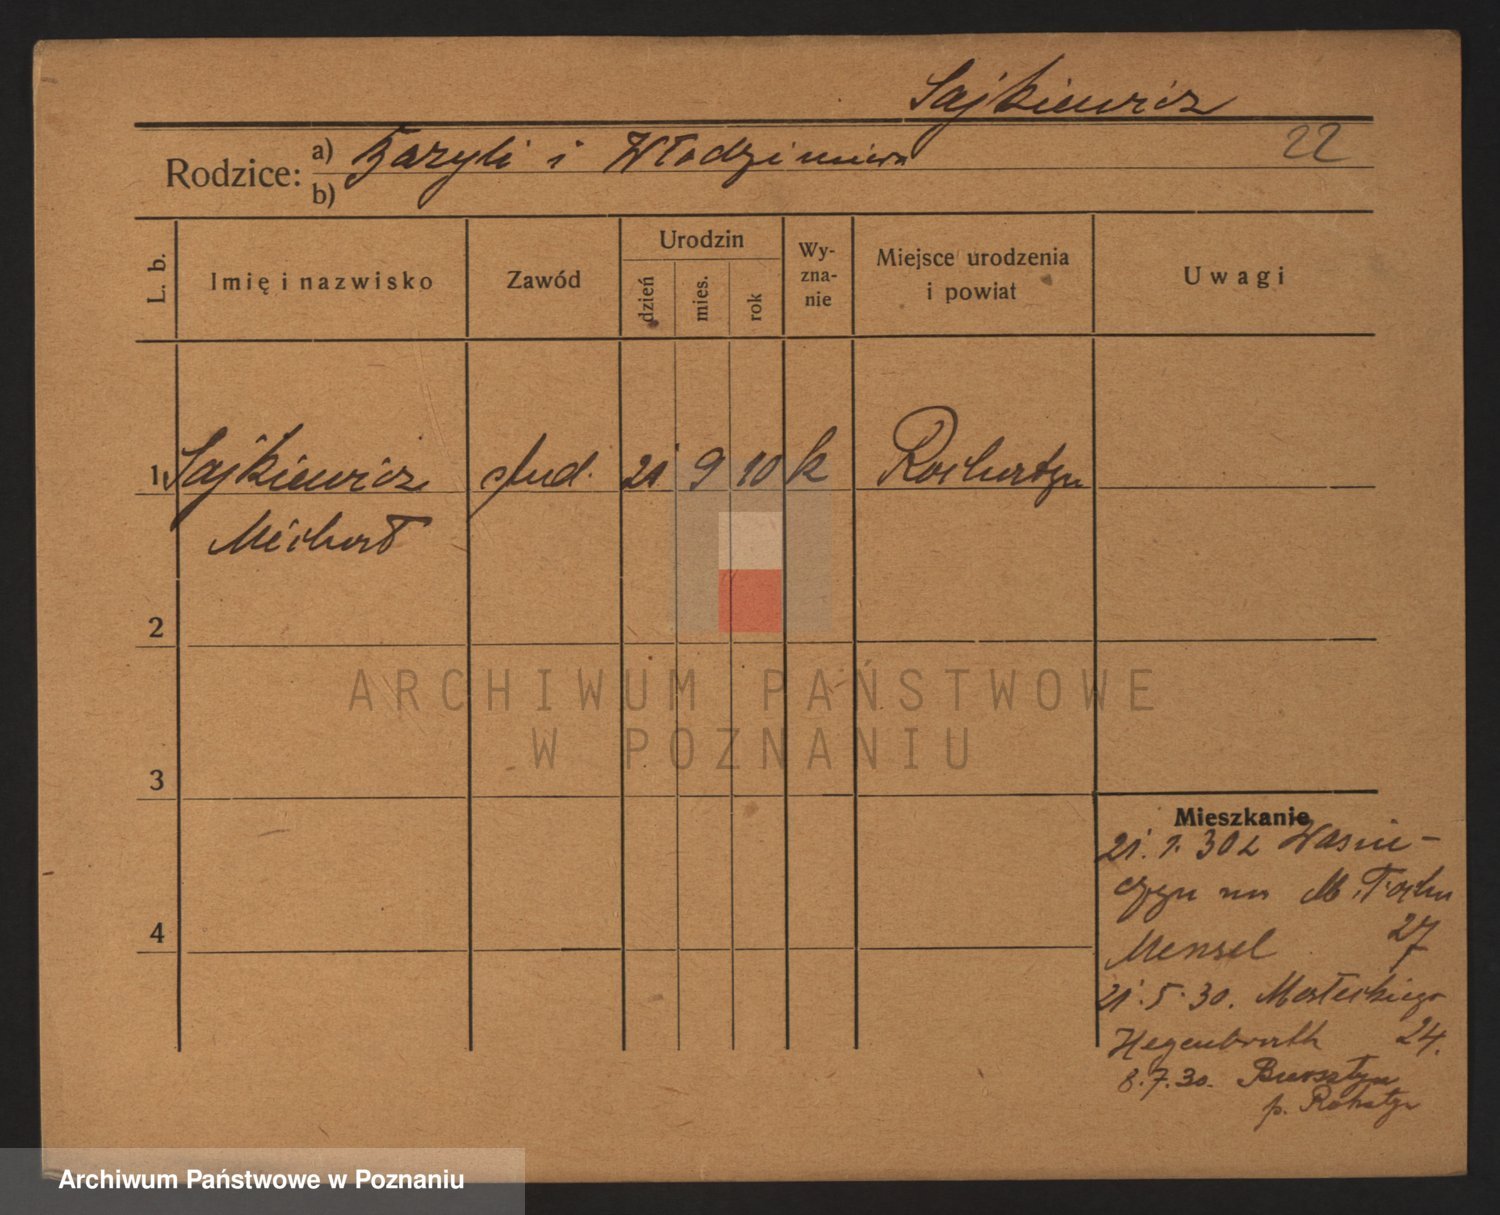 Sajkiewicz
22
Rodzice: a) Bazyli i Włodzimiera
b)
L. b.
Imię i nazwisko
Zawód
Urodzin
dzień
mies.
rok
Wy-
zna-
nie
Miejsce urodzenia
i powiat
Uwagi
1 Sajkiewicz stud. 21 9 10 k
Michał
2
3
4
Mieszkanie
21. 1. 30 z
na M. Focha
Mensel 27
21. 5. 30. Masłeckiego
24.
8. 7. 30. Bursztyn
p. Rohatyn
ARCHIWUM PAŃSTWOWE
W POZNANIU
Archiwum Państwowe w Poznaniu